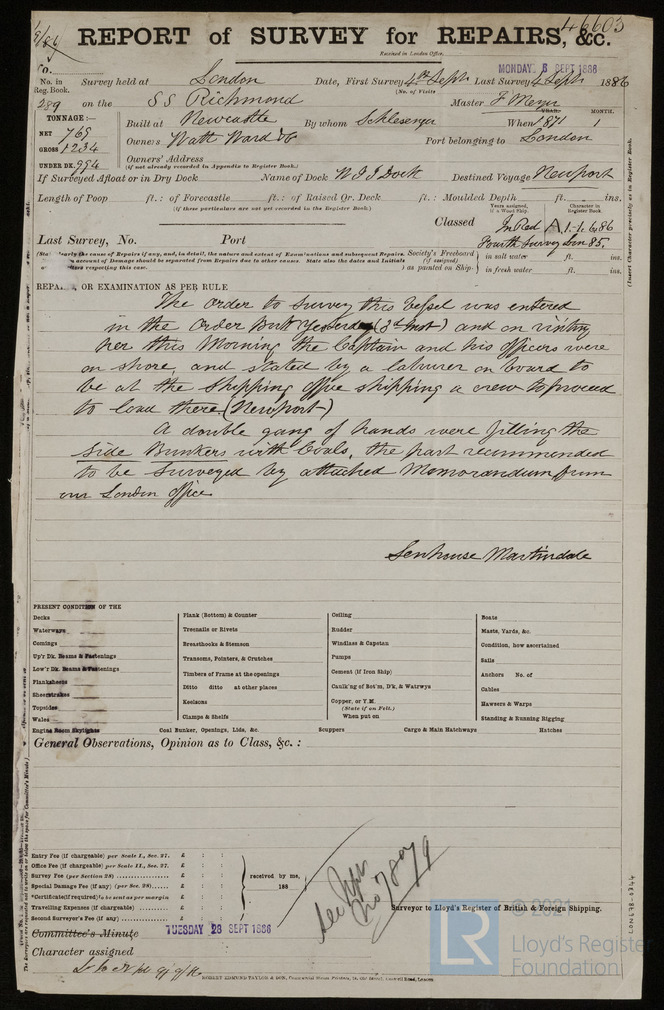 46603
REPORT of SURVEY for REPAIRS, &c.
Received in London Office,
No.
MONDAY, 6 SEPT 1886
No. in Reg. Book. Survey held at London Date, First Survey 4th Sept Last Survey 4 Sept 1886
(No. of Visits
289 on the SS Richmond Master F Meyer
TONNAGE:— Built at Newcastle By whom Schlesenger When 1871 YEAR. MONTH. 1
NET 769
GROSS 1234 Owners Watt Ward & Co Port belonging to London
UNDER DK. 994 Owners' Address
(if not already recorded in Appendix to Register Book.)
If Surveyed Afloat or in Dry Dock Name of Dock W I J Dock Destined Voyage Newport
Length of Poop ft.: of Forecastle ft.: of Raised Qr. Deck ft.: Moulded Depth ft. ins.
(If these particulars are not yet recorded in the Register Book.)
Years assigned, if a Wood Ship. Character in Register Book.
Classed In Red A 1-1.6.86
Last Survey, No. Port Fourth Survey Lon 85.
Society's Freeboard (if assigned) as painted on Ship in salt water ft. ins.
in fresh water ft. ins.
OR EXAMINATION AS PER RULE
The Order to Survey this Vessel was entered
in the Order Book Yesterday (3d Inst) and on visiting
her this Morning the Captain and his Officers were
on shore, and stated by a labourer on board to
be at the Shipping Office shipping a crew to proceed
to load there (Newport)
A double gang of hands were filling the
Side Bunkers with Coals, the part recommended
to be Surveyed by attached Memorandum from
our London Office
Senhouse Martindale
PRESENT CONDITION OF THE
Decks
Waterways
Comings
Up'r Dk. Beams & Fastenings
Low'r Dk. Beams & Fastenings
Planksheers
Sheerstrakes
Topsides
Wales
Engine Room Skylights
Plank (Bottom) & Counter
Treenails or Rivets
Breasthooks & Stemson
Transoms, Pointers, & Crutches
Timbers of Frame at the openings
Ditto ditto at other places
Keelsons
Clamps & Shelfs
Coal Bunker, Openings, Lids, &c.
Ceiling
Rudder
Windlass & Capstan
Pumps
Cement (if Iron Ship)
Caulk'ng of Bot'm, D'k, & Watrwys
Copper, or Y.M.
(State if on Felt.)
When put on
Scuppers
Cargo & Main Hatchways
Boats
Masts, Yards, &c.
Condition, how ascertained
Sails
Anchors No. of
Cables
Hawsers & Warps
Standing & Running Rigging
Hatches
General Observations, Opinion as to Class, &c. :
Entry Fee (if chargeable) per Scale I., Sec. 27. £ : :
Office Fee (if chargeable) per Scale II., Sec. 27. £ : :
Survey Fee (per Section 28) £ : :
Special Damage Fee (if any) (per Sec. 28) £ : :
*Certificate (if required) to be sent as per margin £ : :
Travelling Expenses (if chargeable) £ : :
Second Surveyor's Fee (if any) £ : :
received by me,
188
Surveyor to Lloyd's Register of British & Foreign Shipping.
Committee's Minute TUESDAY 28 SEPT 1886
Character assigned
ROBERT EDMUND TAYLOR & SON,
LR
© 2021
Lloyd's Register
Foundation
LON678-0344